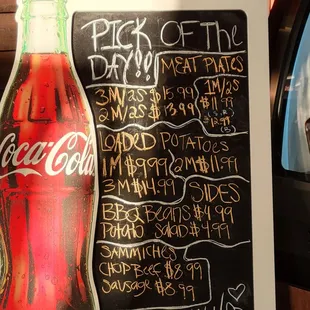 PICK OF THE
DAY!!
MEAT PLATES
3M/2S $15.99
2M/2S $13.99
1M/2S
$11.99
LOADED POTATOES
1M $9.99 2M $11.99
3M $14.99
SIDES
BBQ BEANS $4.99
Potato SALAD $4.99
SAMMICHES
CHOP BEEF $8.99
SAUSAGE $8.99
Coca-Cola